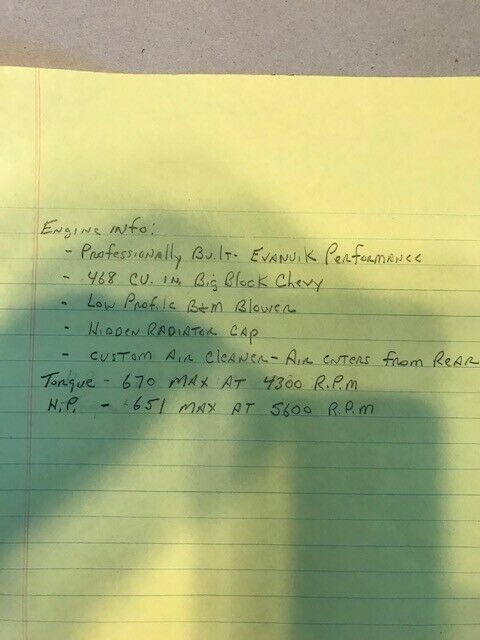 Engine info:
- Professionally Built - Evanuik Performance
- 468 cu. in. Big Block Chevy
- Low Profile B&M Blower
- Hidden Radiator Cap
- Custom Air Cleaner - Air enters from Rear
Torque - 670 max at 4300 R.P.M
H.P. - 651 max at 5600 R.P.M